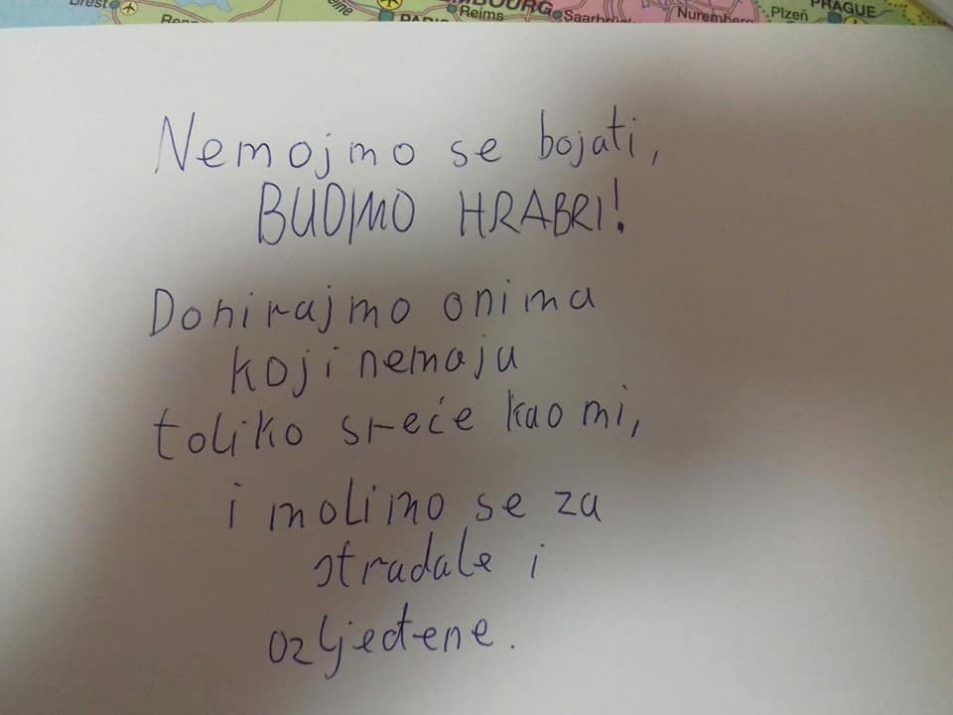 Brest
Reims
Saarbrü
Nuremberg
Plzeň
PRAGUE
Nemojmo se bojati,
BUDIMO HRABRI!
Donirajmo onima
koji nemaju
toliko sreće kao mi,
i molimo se za
stradale i
ozljeđene.